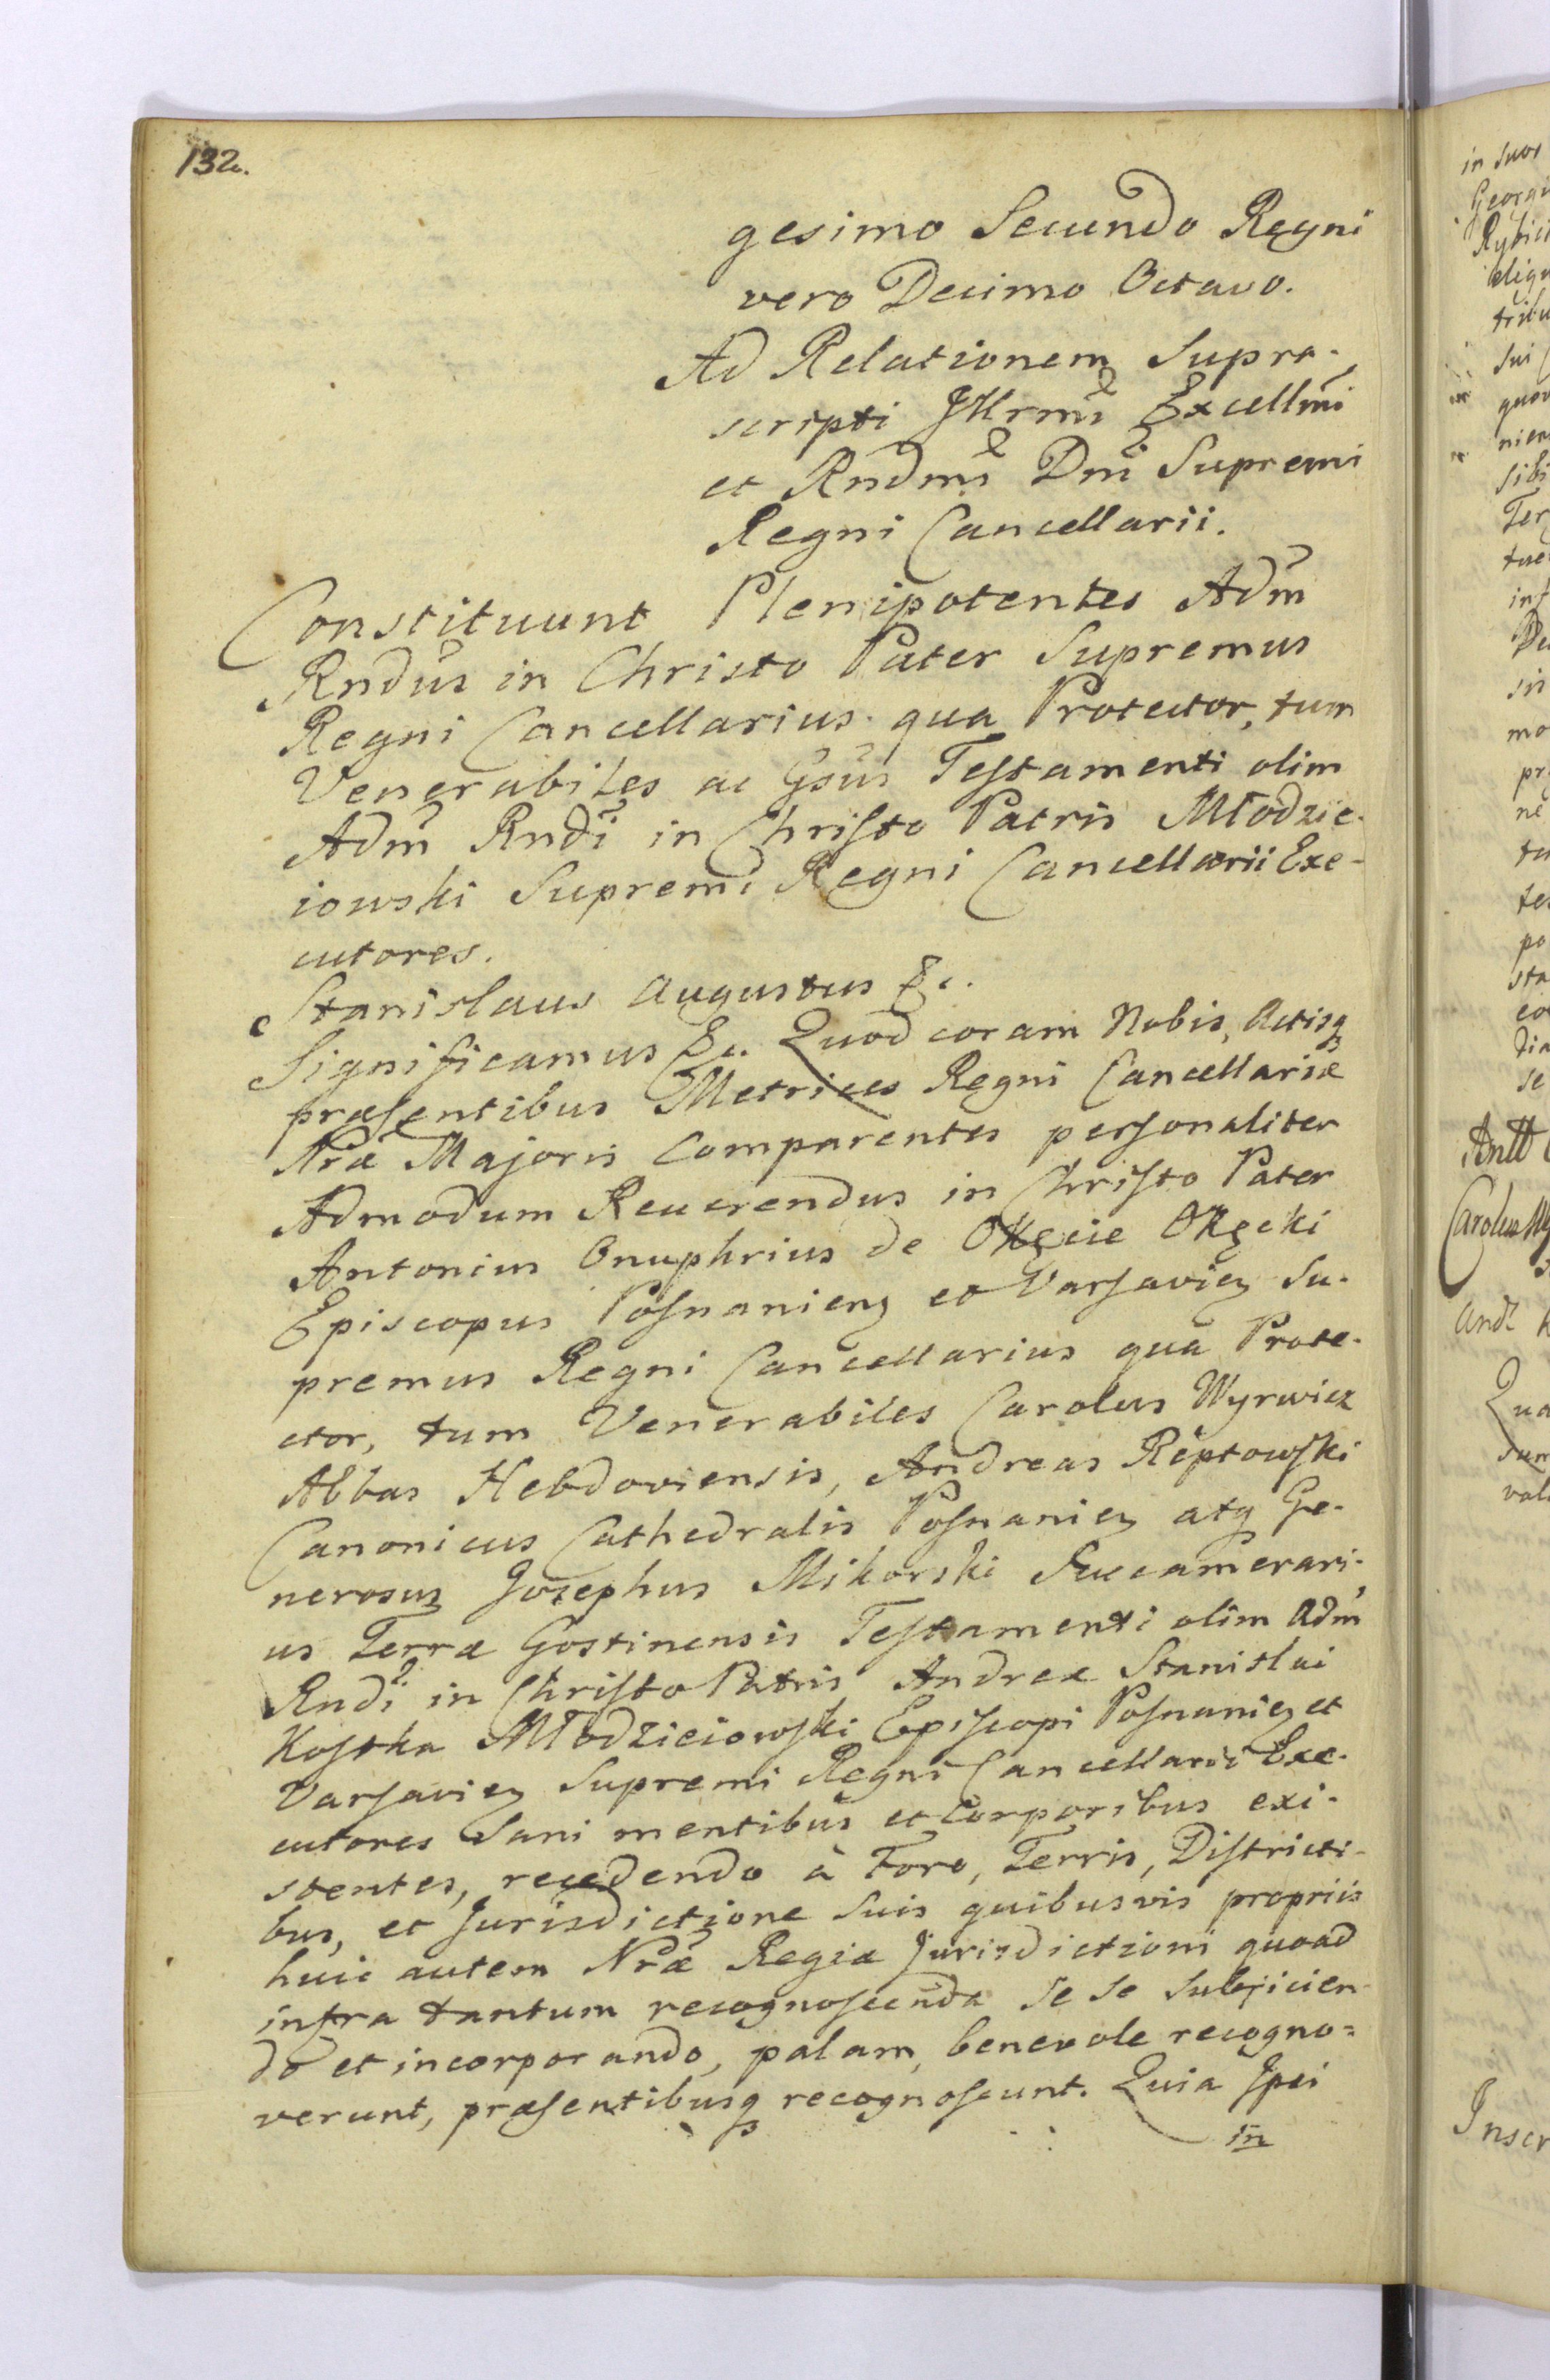 132.
gesimo Secundo Regni
vero Decimo Octavo.
Ad Relationem Supra-
scripti Jllrmi Excellmi
et Rndmi Dni Supremi
Regni Cancellarii.
Constituunt Plenipotentes Adm
Rndus in Christo Pater Supremus
Regni Cancellarius qua Protector, tum
Venerabiles ac Gsus Testamenti olim
Adm Rndi in Christo Patris Młodzie-
iowski Supremi Regni Cancellarii Exe-
cutores.
Stanislaus Augustus &c.
Significamus &c. Quod coram Nobis, Actisq
præsentibus Metrices Regni Cancellariæ
Nræ Majoris Comparentes personaliter
Admodum Reverendus in Christo Pater
Antonius Onuphrius de Okęcie Okęcki
Episcopus Posnanien et Varsavien Su-
premus Regni Cancellarius quà Prote-
ctor, tum Venerabiles Carolus Wyrwicz
Abbas Hebdoviensis, Andreas Reptowski
Canonicus Cathedralis Posnanien atq Ge-
nerosus Josephus Mikorski Succamerari-
us Terræ Gostinensis Testamenti olim Adm
Rndi in Christo Patris Andreæ Stanislai
Kostka Młodzieiowski Episcopi Posnanien et
Varsavien Supremi Regni Cancellarii Exe-
cutores Sani mentibus et Corporibus exi-
stentes, recedendo à Foro, Terris, Districti-
bus, et Jurisdictione Suis quibusvis propriis
huic autem Nræ Regiæ Jurisdictioni quoad
infra tantum recognoscenda se se subjicien-
do et incorporando, palam, benevole recogno=
verunt, præsentibusq recognoscunt. Quia Jpsi
in
in suos
sibi
Ter
mo
se
Carolus Wy
Inscr